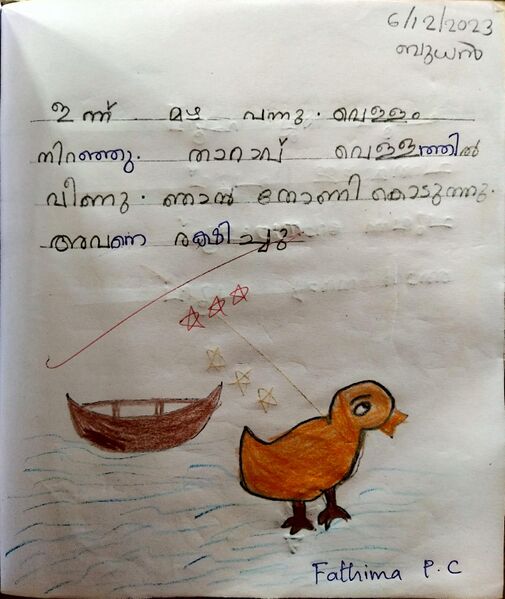 6/12/2023
ബുധൻ
ഇന്ന് മഴ വന്നു. വെള്ളം
നിറഞ്ഞു. താറാവ് വെള്ളത്തിൽ
വീണു. ഞാൻ തോണി കൊടുത്തു.
അവനെ രക്ഷിച്ചു.
Fathima P.C